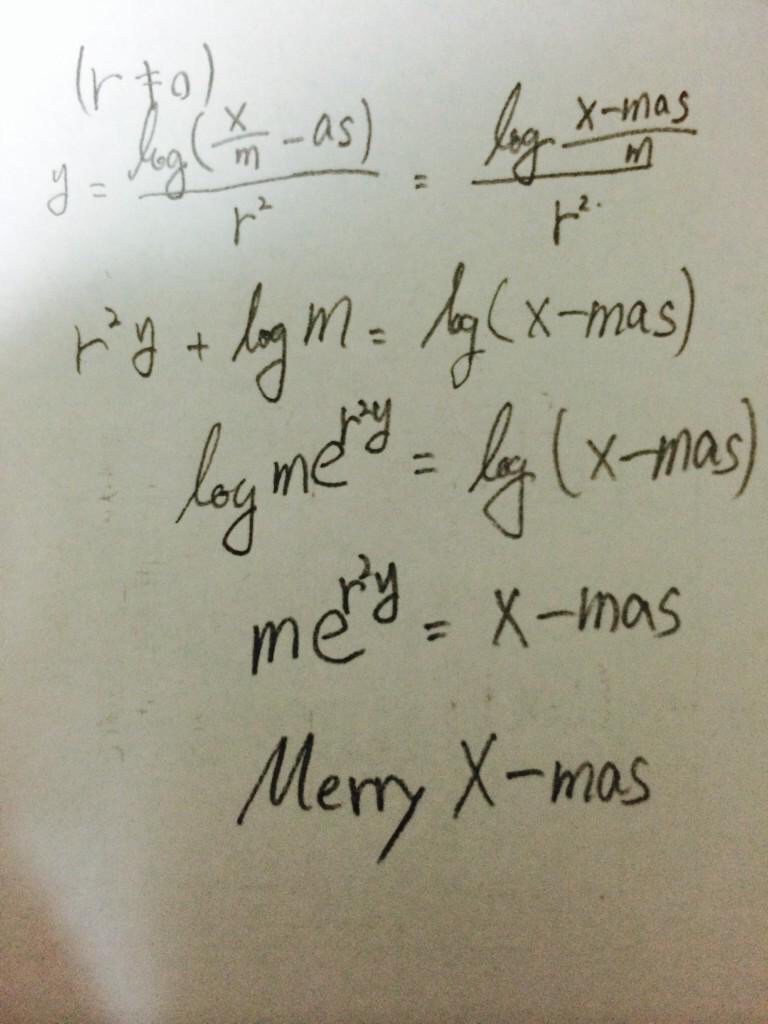 (r ≠ 0)
y = log(x/m - as)/r² = log (x-mas)/m / r²
r²y + log m = log(x-mas)
log me^(r²y) = log(x-mas)
me^(r²y) = x-mas
Merry X-mas